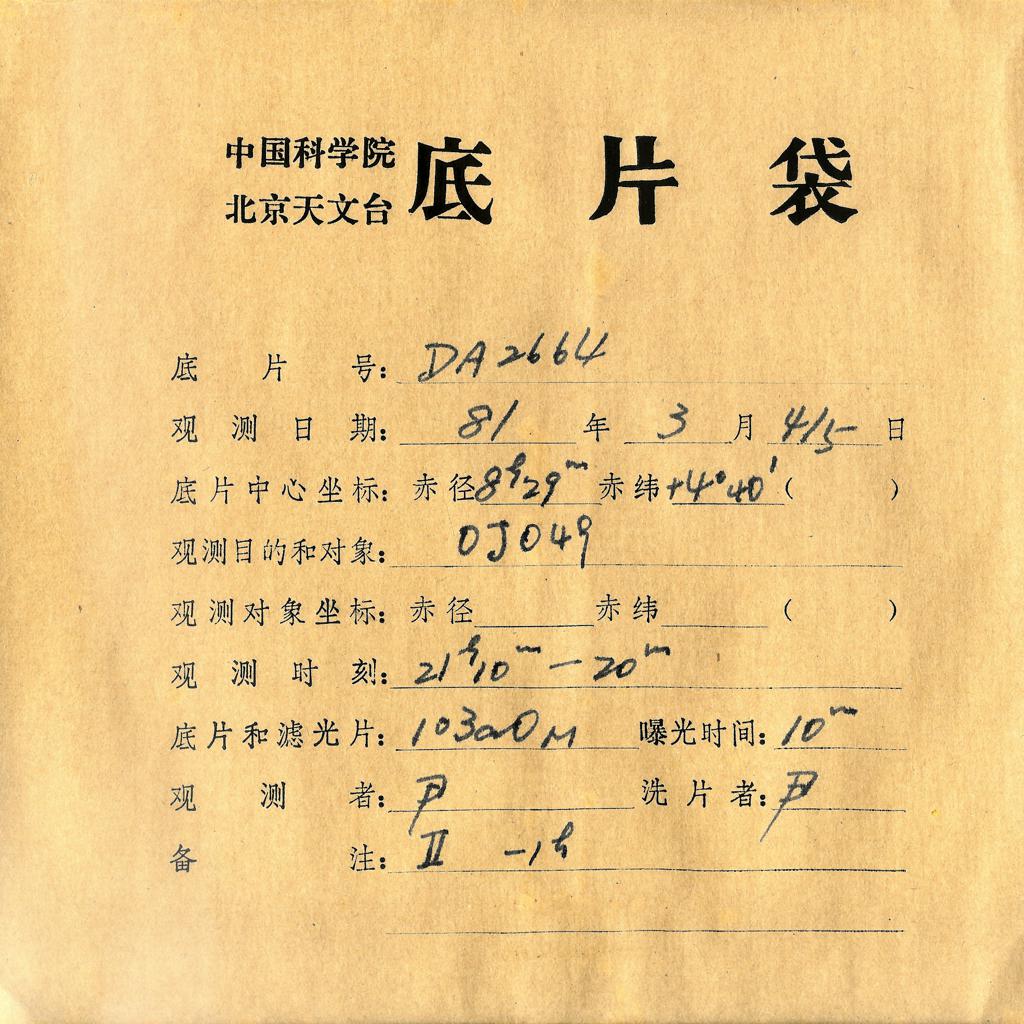 中国科学院
北京天文台
底片袋
底片号: DA2664
观测日期: 81年 3月 4/5日
底片中心坐标: 赤径8h29m 赤纬+4°40′( )
观测目的和对象: OJ049
观测对象坐标: 赤径 赤纬 ( )
观测时刻: 21h10m—20m
底片和滤光片: 103aO M 曝光时间: 10m
观测者: 尹 洗片者: 尹
备注: II -1h